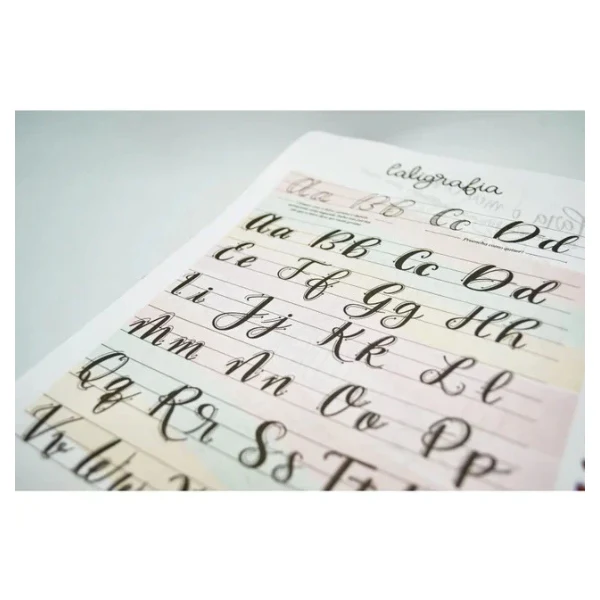 Caligrafia
Aa Bb Cc Dd
Aa Bb Cc Dd
Ee Ff Gg Hh
Ii Jj Kk Ll
Mm Nn Oo Pp
Qq Rr Ss Tt
Vv Ww